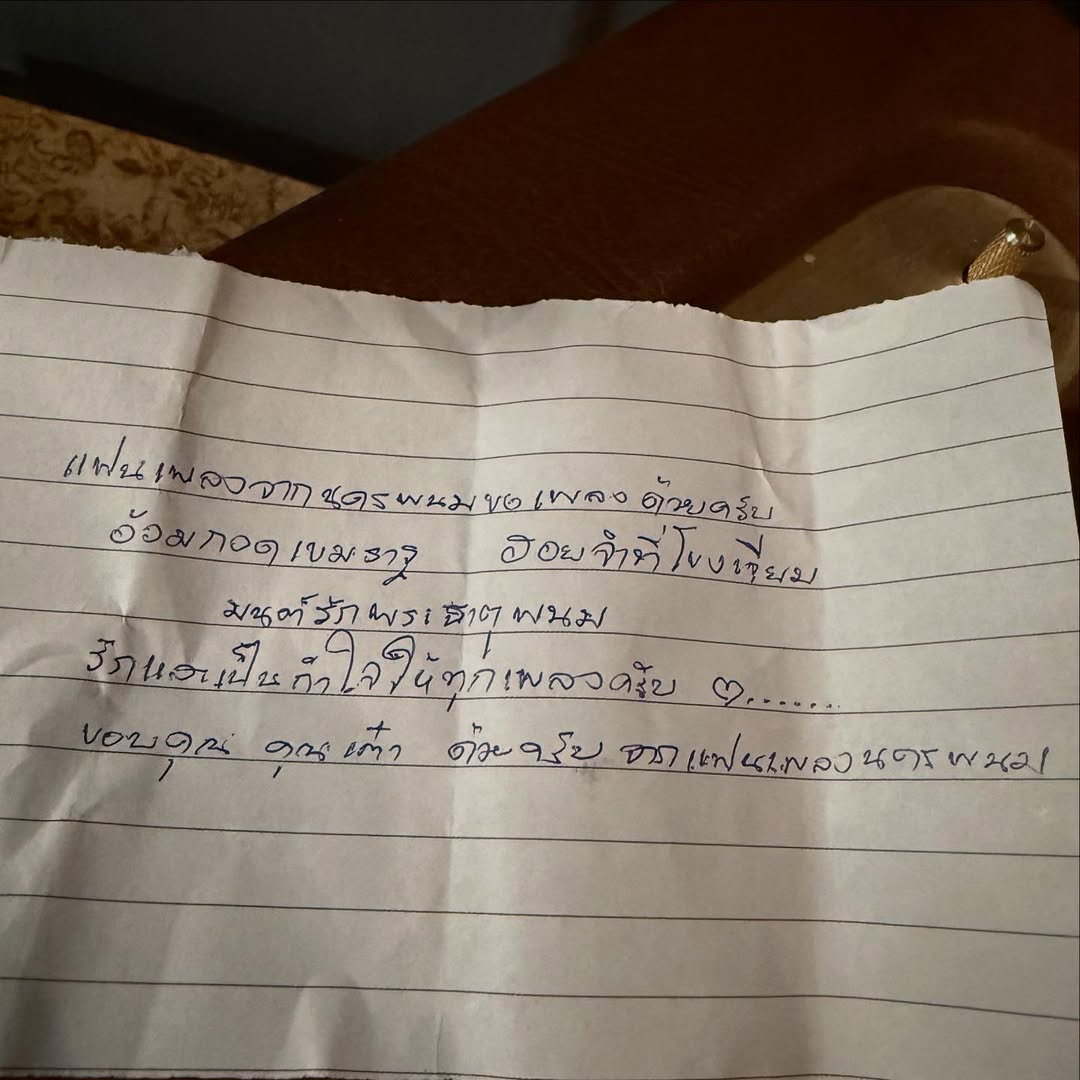 แฟนเพลงจากนครพนมขอเพลงด้วยครับ
อ้อมกอดเขมราฐ ฮอยจำที่โขงเจียม
มนต์รักพระธาตุพนม
รักและเป็นกำใจให้ทุกเพลงครับ ๓........
ขอบคุณ คุณเต๋า ด้วยครับ จากแฟนเพลงนครพนม